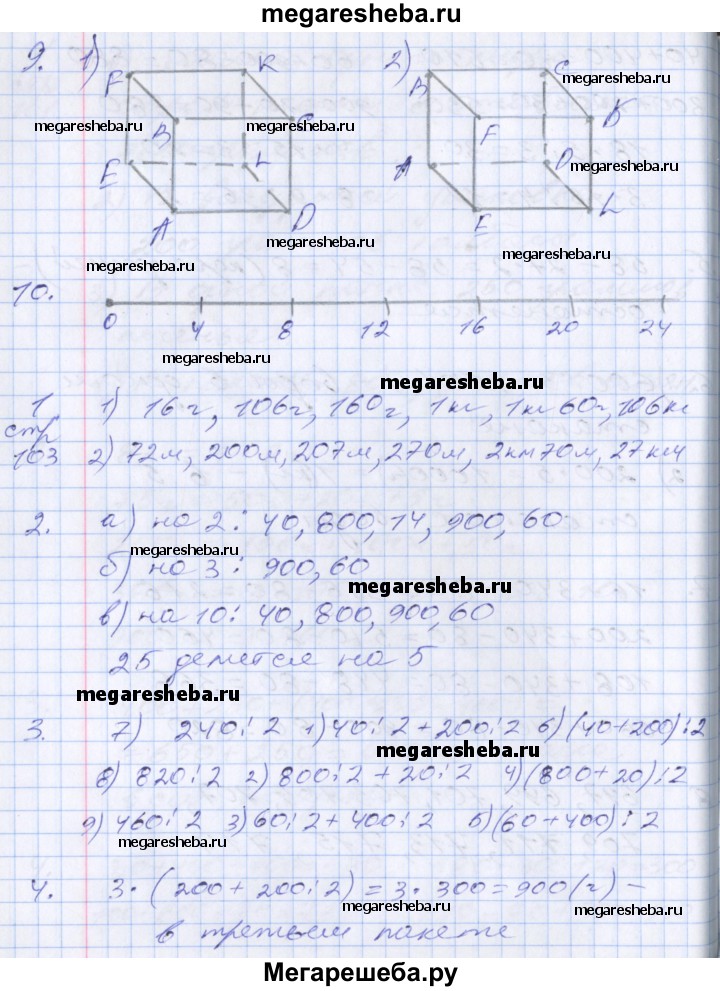 megaresheba.ru
9. 1) 2)
F K B C
megaresheba.ru
megaresheba.ru
B C F K
megaresheba.ru
E L A D
megaresheba.ru
megaresheba.ru
A D E L
megaresheba.ru
megaresheba.ru
megaresheba.ru
10.
0 4 8 12 16 20 24
megaresheba.ru
megaresheba.ru
1 1) 16 г, 106 г, 160 г, 1 кг, 1 кг 60 г, 106 кг
стр
103 2) 72 м, 200 м, 207 м, 270 м, 2 км 70 м, 27 км
2. а) на 2: 40, 800, 14, 900, 60
megaresheba.ru
б) на 3: 900, 60
megaresheba.ru
в) на 10: 40, 800, 900, 60
25 делится на 5
megaresheba.ru
3. 7) 240:2 1) 40:2 + 200:2 6) (40+200):2
megaresheba.ru
8) 820:2 2) 800:2 + 20:2 4) (800+20):2
9) 460:2 3) 60:2 + 400:2 5) (60+400):2
megaresheba.ru
4. 3·(200+200:2) = 3·300 = 900 (г) –
megaresheba.ru
megaresheba.ru
в третьем пакете
Мегарешеба.ру